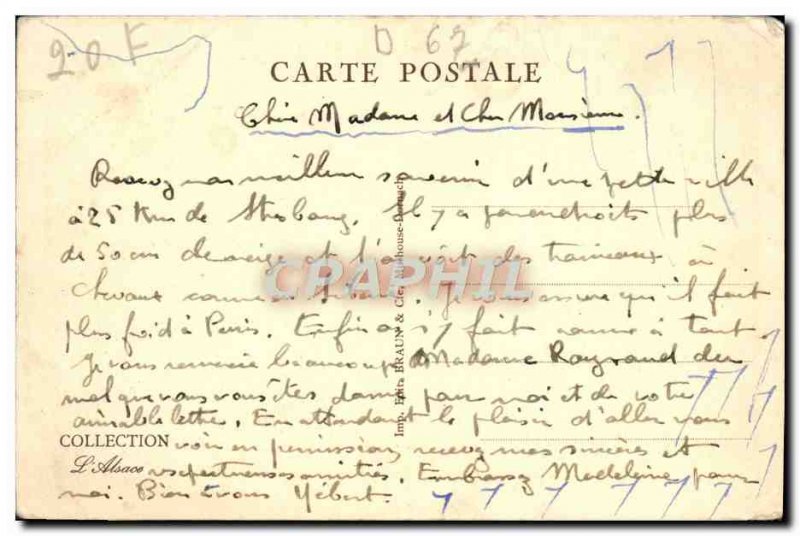 20F
D 67
CARTE POSTALE
Chère Madame et Cher Monsieur.
Recevez mes meilleurs souvenir d'une petite ville
à 25 Kms de Strasbourg. Il y a par endroits plus
de 50 cm de neige et l'on voit des traineaux à
chevaux comme en Sibérie. Je vous assure qu'il fait
plus froid à Paris. Enfin on s'y fait comme à tout.
Je vous remercie beaucoup Madame Raynaud du
mal que vous vous êtes donné pour moi et de votre
aimable lettre. En attendant le plaisir d'aller vous
COLLECTION voir en permission, recevez mes sincères et
L'Alsace respectueuses amitiés. Embrassez Madeleine pour
moi. Bien à vous Hébert.
Imp. Edit. BRAUN & Cie, Mulhouse-Dornach
CRAPHIL